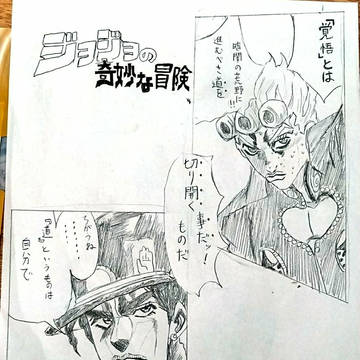 ジョジョの
奇妙な冒険
「覚悟」とは
暗闇の荒野に!!
進むべき道を
切り開く事だッ!
ものだ
ちがうね
………
『道』というものは
自分で